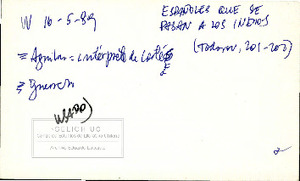 N 16-5-89
ESPAÑOLES QUE SE
PASAN A LOS INDIOS
(Todorov, 201-202)
= Aguilar = intérprete de Cortés
= Guerrero
USADO
CELICH UC